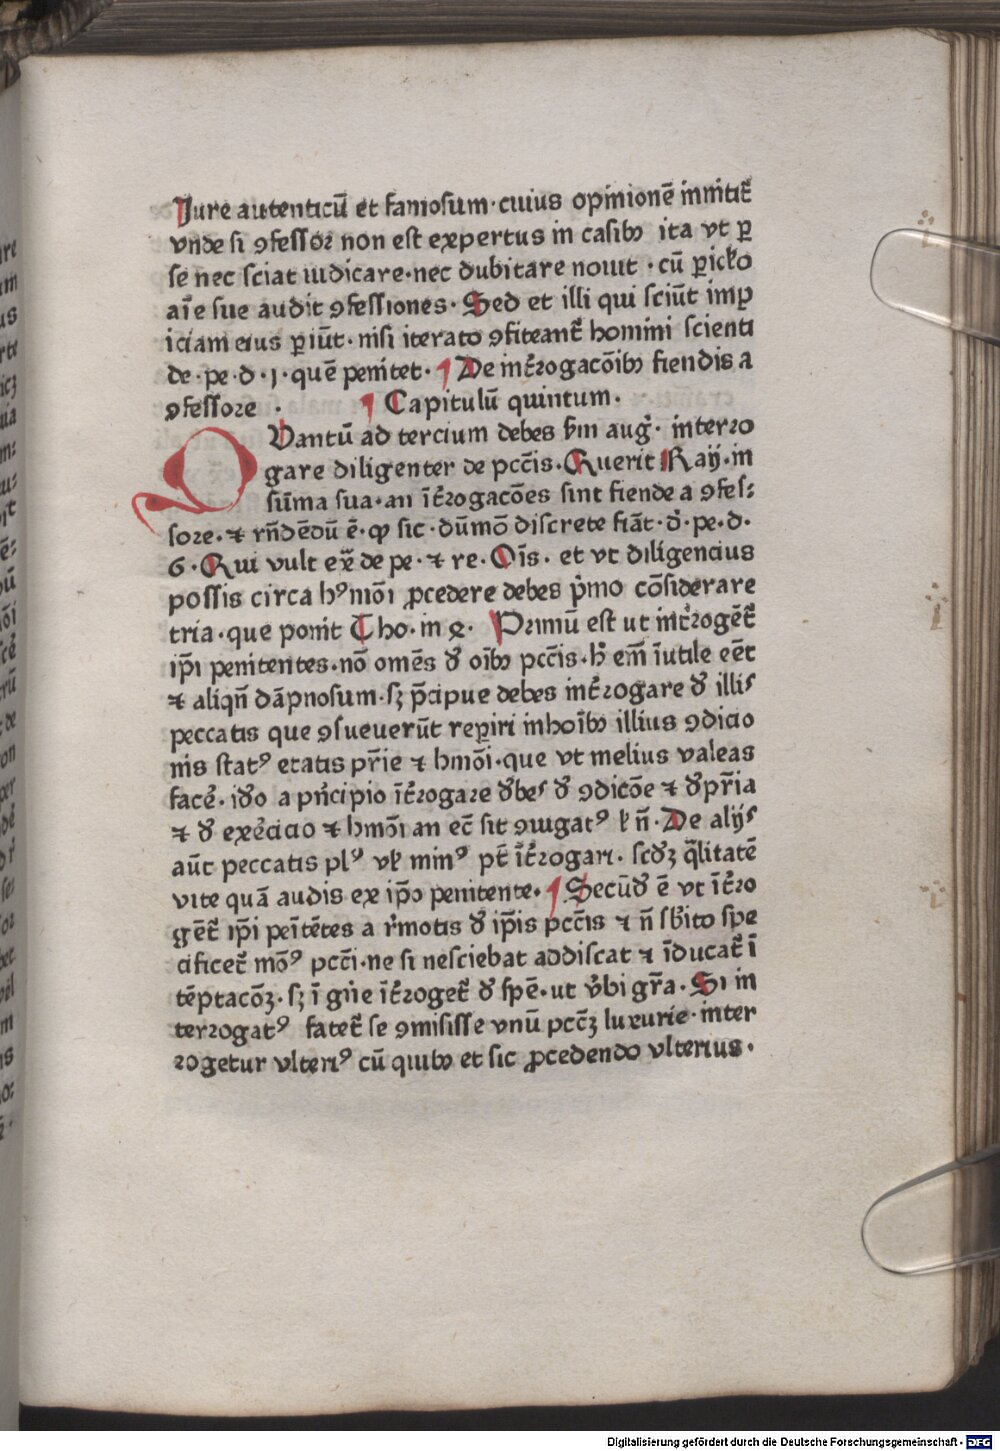 Jure autenticū et famosum·cuius opinionē īmitat̄
vnde si ꝯfessor non est expertus in casibꝫ ita vt ꝑ
se nec sciat iudicare·nec dubitare nouit·cū ꝑicko
aīe sue audit ꝯfessiones·Sed et illi qui sciūt imꝑ
iciam eius ꝑiūt·nisi iterato ꝯfiteant᷑ homini scienti
de·pe·d·j·quē penitet·¶ De int̄rogacōibꝫ fiendis a
ꝯfessore· ¶ Capitulū quintum·
QVantū ad tercium debes ẜm aug̉·interro
gare diligenter de pcc̄is·Querit Raÿ·in
sūma sua·an īt̄rogacōes sint fiende a ꝯfes:
sore·⁊ rn̄dēdū ē·ꝙ sic·dūmō discrete fiāt·d̉·pe·d·
6·Qui vult ex̄ de pe·⁊ re·Oīs·et vt diligencius
possis circa hꝰmōi ꝓcedere debes p̉mo cōsiderare
tria·que ponit Tho·in 4· Primū est ut int̄rogēt᷑
ip̄i penitentes·nō omēs đ oībꝫ pcc̄is·h̄ em̄ īutile eēt
⁊ aliqn̄ dāpnosum·sꝫ p̄cipue debes int̄rogare đ illis
peccatis que ꝯsueuerūt reperiri inhoībꝫ illius ꝯdicio
nis statꝰ etatis pr̄ie ⁊ hmōi·que vt melius valeas
facē·iđo a pn̄cipio īt̄rogare đbes đ ꝯdicōe ⁊ đpr̄ia
⁊ đ exēcicio ⁊ hmōi an ec̄ sit ꝯiugatꝰ ł n̄·De alijs
aūt peccatis plꝰ vł minꝰ pt̄ īt̄rogari·scđꝫ q̄litatē
vite quā audis ex ip̄o penitente·¶ Secūđ ē vt īt̄ro
gēt᷑ ip̄i peītētes a r̄motis đ ip̄is pcc̄is ⁊ n̄ sb̄ito spe
cificet᷑ mōꝰ pcc̄i·ne si nesciebat addiscat ⁊ īducat᷑ ī
tēptacōꝫ·sꝫ ī gn̄e īt̄roget᷑ đ spē·ut v̉bi gr̄a·Si in
terrogatꝰ fatet᷑ se ꝯmisisse vnū pcc̄ꝫ luxurie·inter
rogetur vlteriꝰ cū quibꝫ et sic ꝓcedendo vlterius·
Digitalisierung gefördert durch die Deutsche Forschungsgemeinschaft - DFG